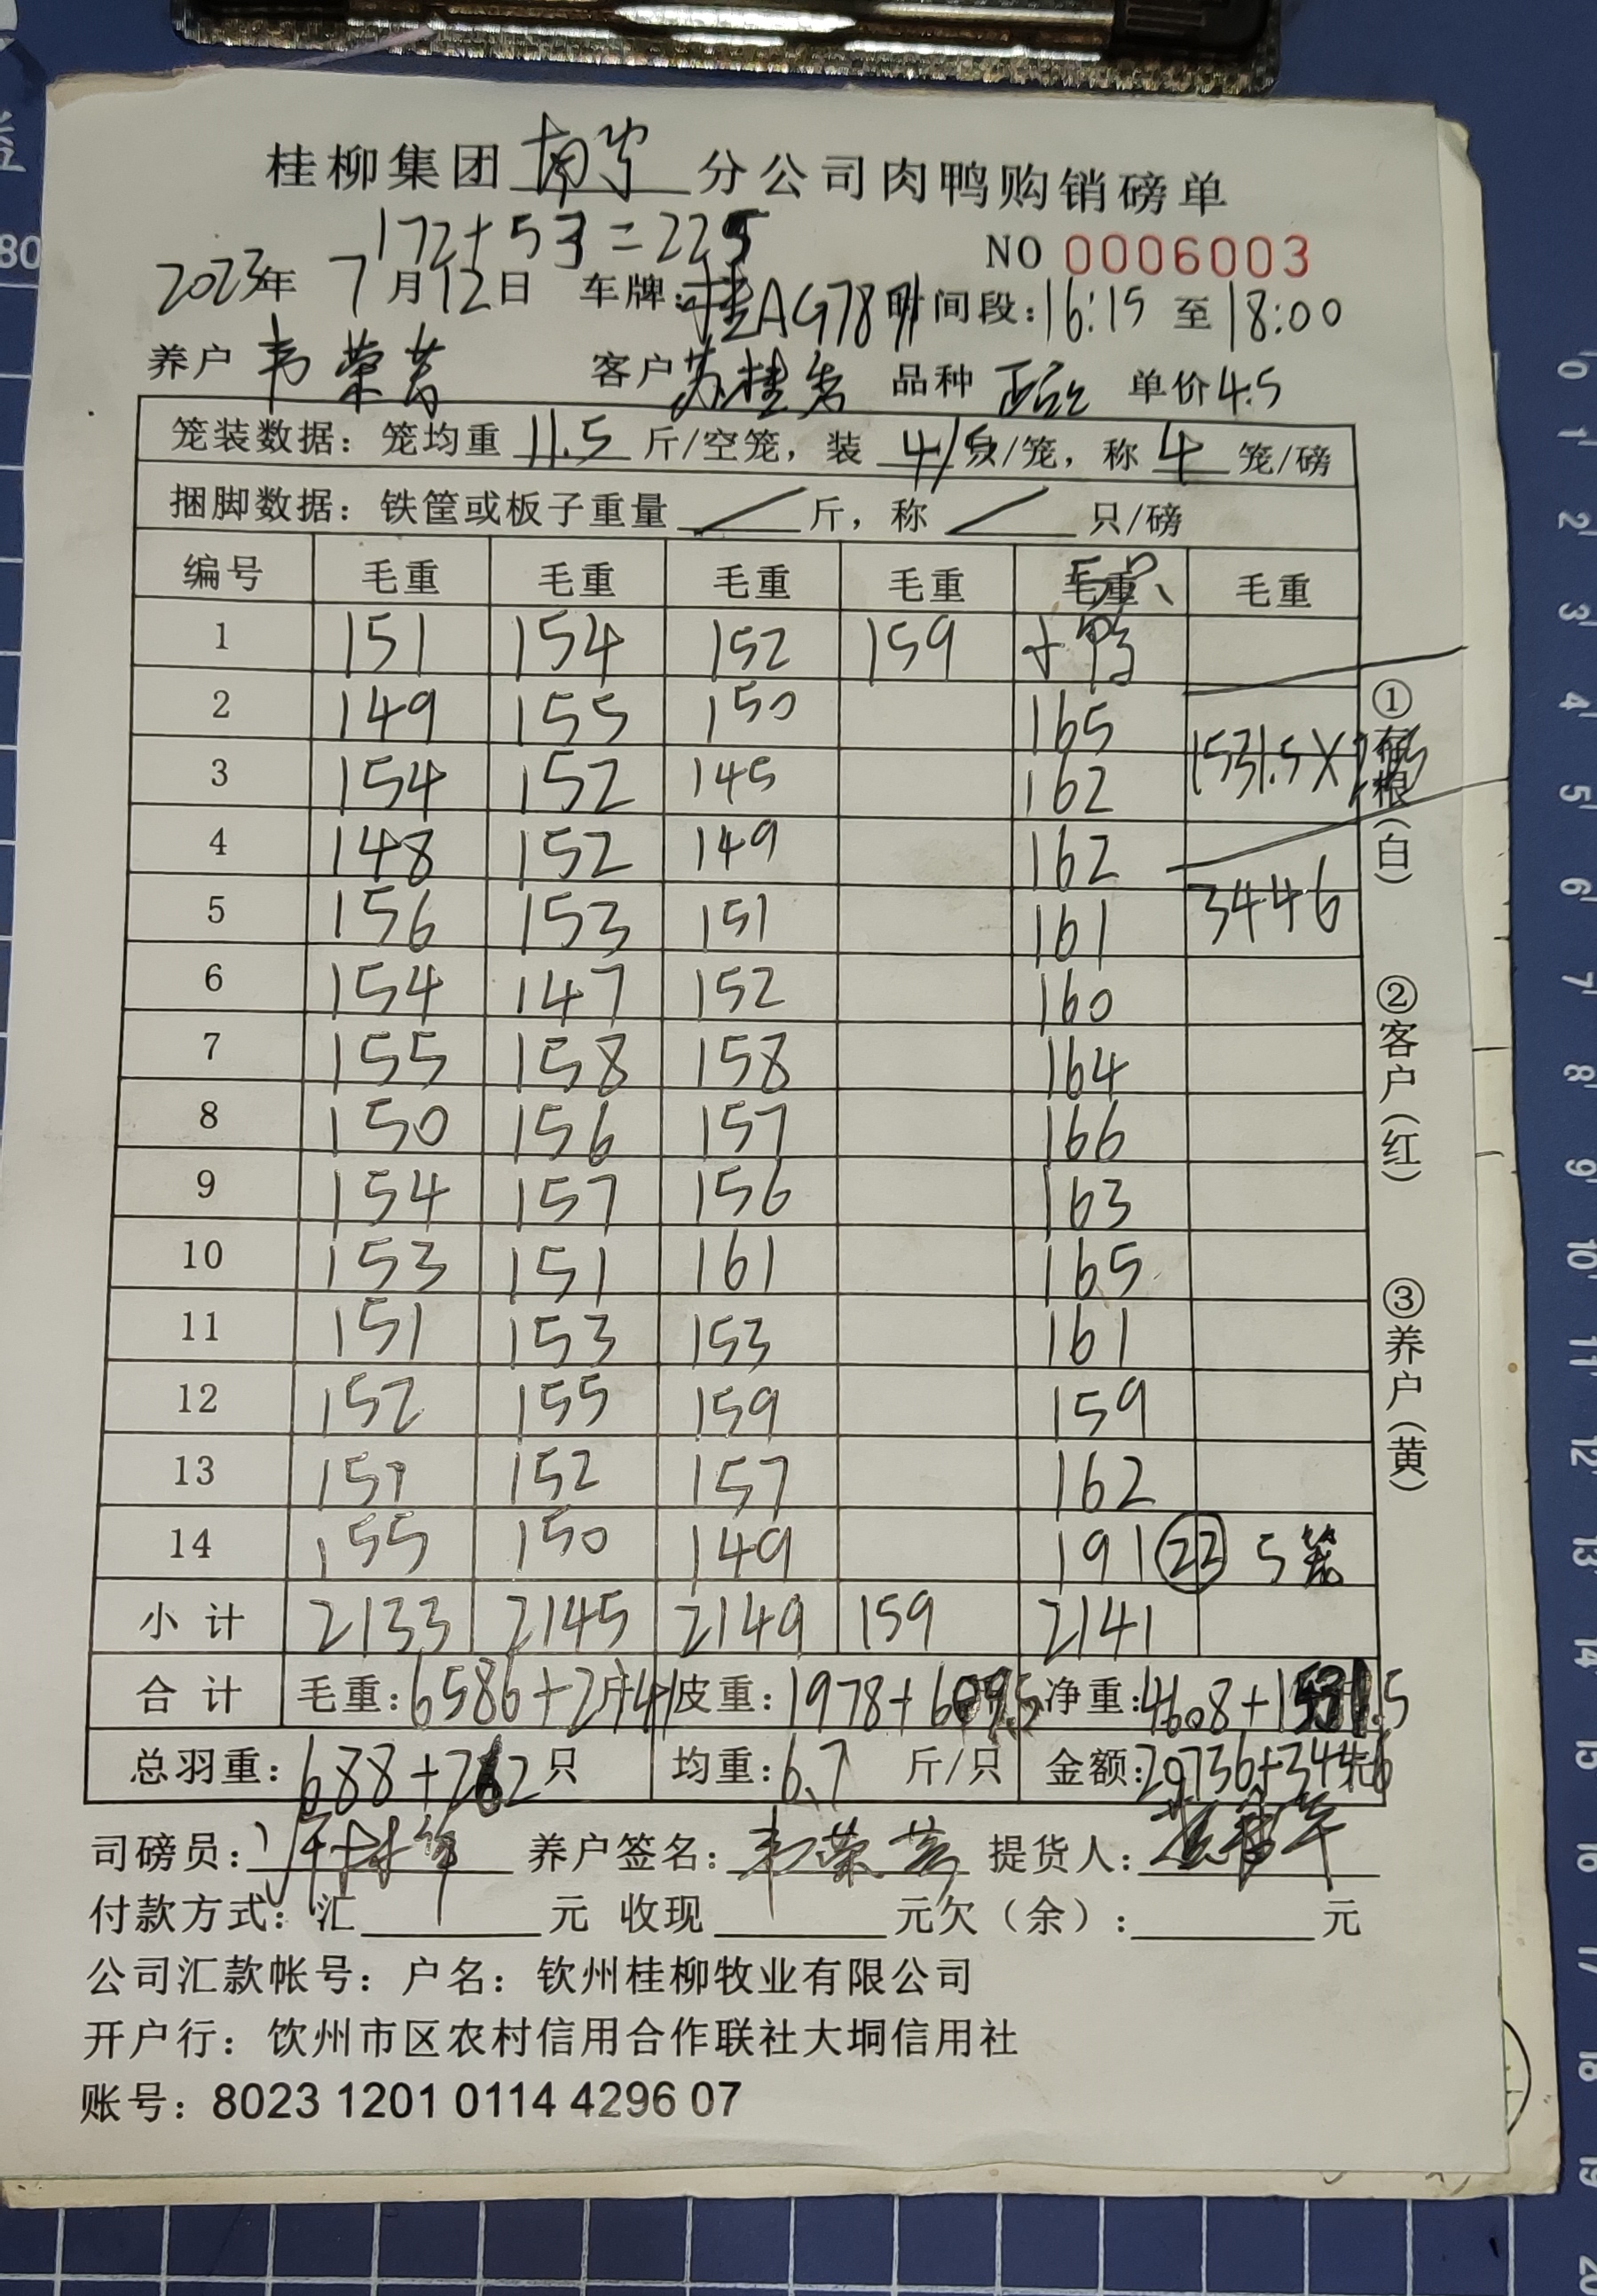 桂柳集团南宁分公司肉鸭购销磅单
172+53=225
NO 0006003
2023年 7月12日 车牌:桂AG78 时间段:16:15 至18:00
养户 韦荣芳 客户 苏桂 品种 单价4.5
笼装数据: 笼均重 11.5 斤/空笼, 装 4/5 只/笼, 称 4 笼/磅
捆脚数据: 铁筐或板子重量 / 斤, 称 / 只/磅
编号 毛重 毛重 毛重 毛重 毛重 毛重
1 151 154 152 159 鸭
2 149 155 150 165
3 154 152 145 162 1531.5×
4 148 152 149 162
5 156 153 151 161 3446
6 154 147 152 160
7 155 158 158 164
8 150 156 157 166
9 154 157 156 163
10 153 151 161 165
11 151 153 153 161
12 152 155 159 159
13 151 152 157 162
14 155 150 149 191 23 5笼
小计 2133 2145 2149 159 2141
合计 毛重:6586+2141 皮重:1978+609.5 净重:4608+1531.5
总羽重:688+262只 均重:6.7 斤/只 金额:20736+3446元
司磅员: 养户签名:韦荣芳 提货人:
付款方式: 汇 元 收现 元欠(余): 元
公司汇款帐号: 户名: 钦州桂柳牧业有限公司
开户行: 饮州市区农村信用合作联社大垌信用社
账号: 8023 1201 0114 4296 07
①存根(白)
②客户(红)
③养户(黄)